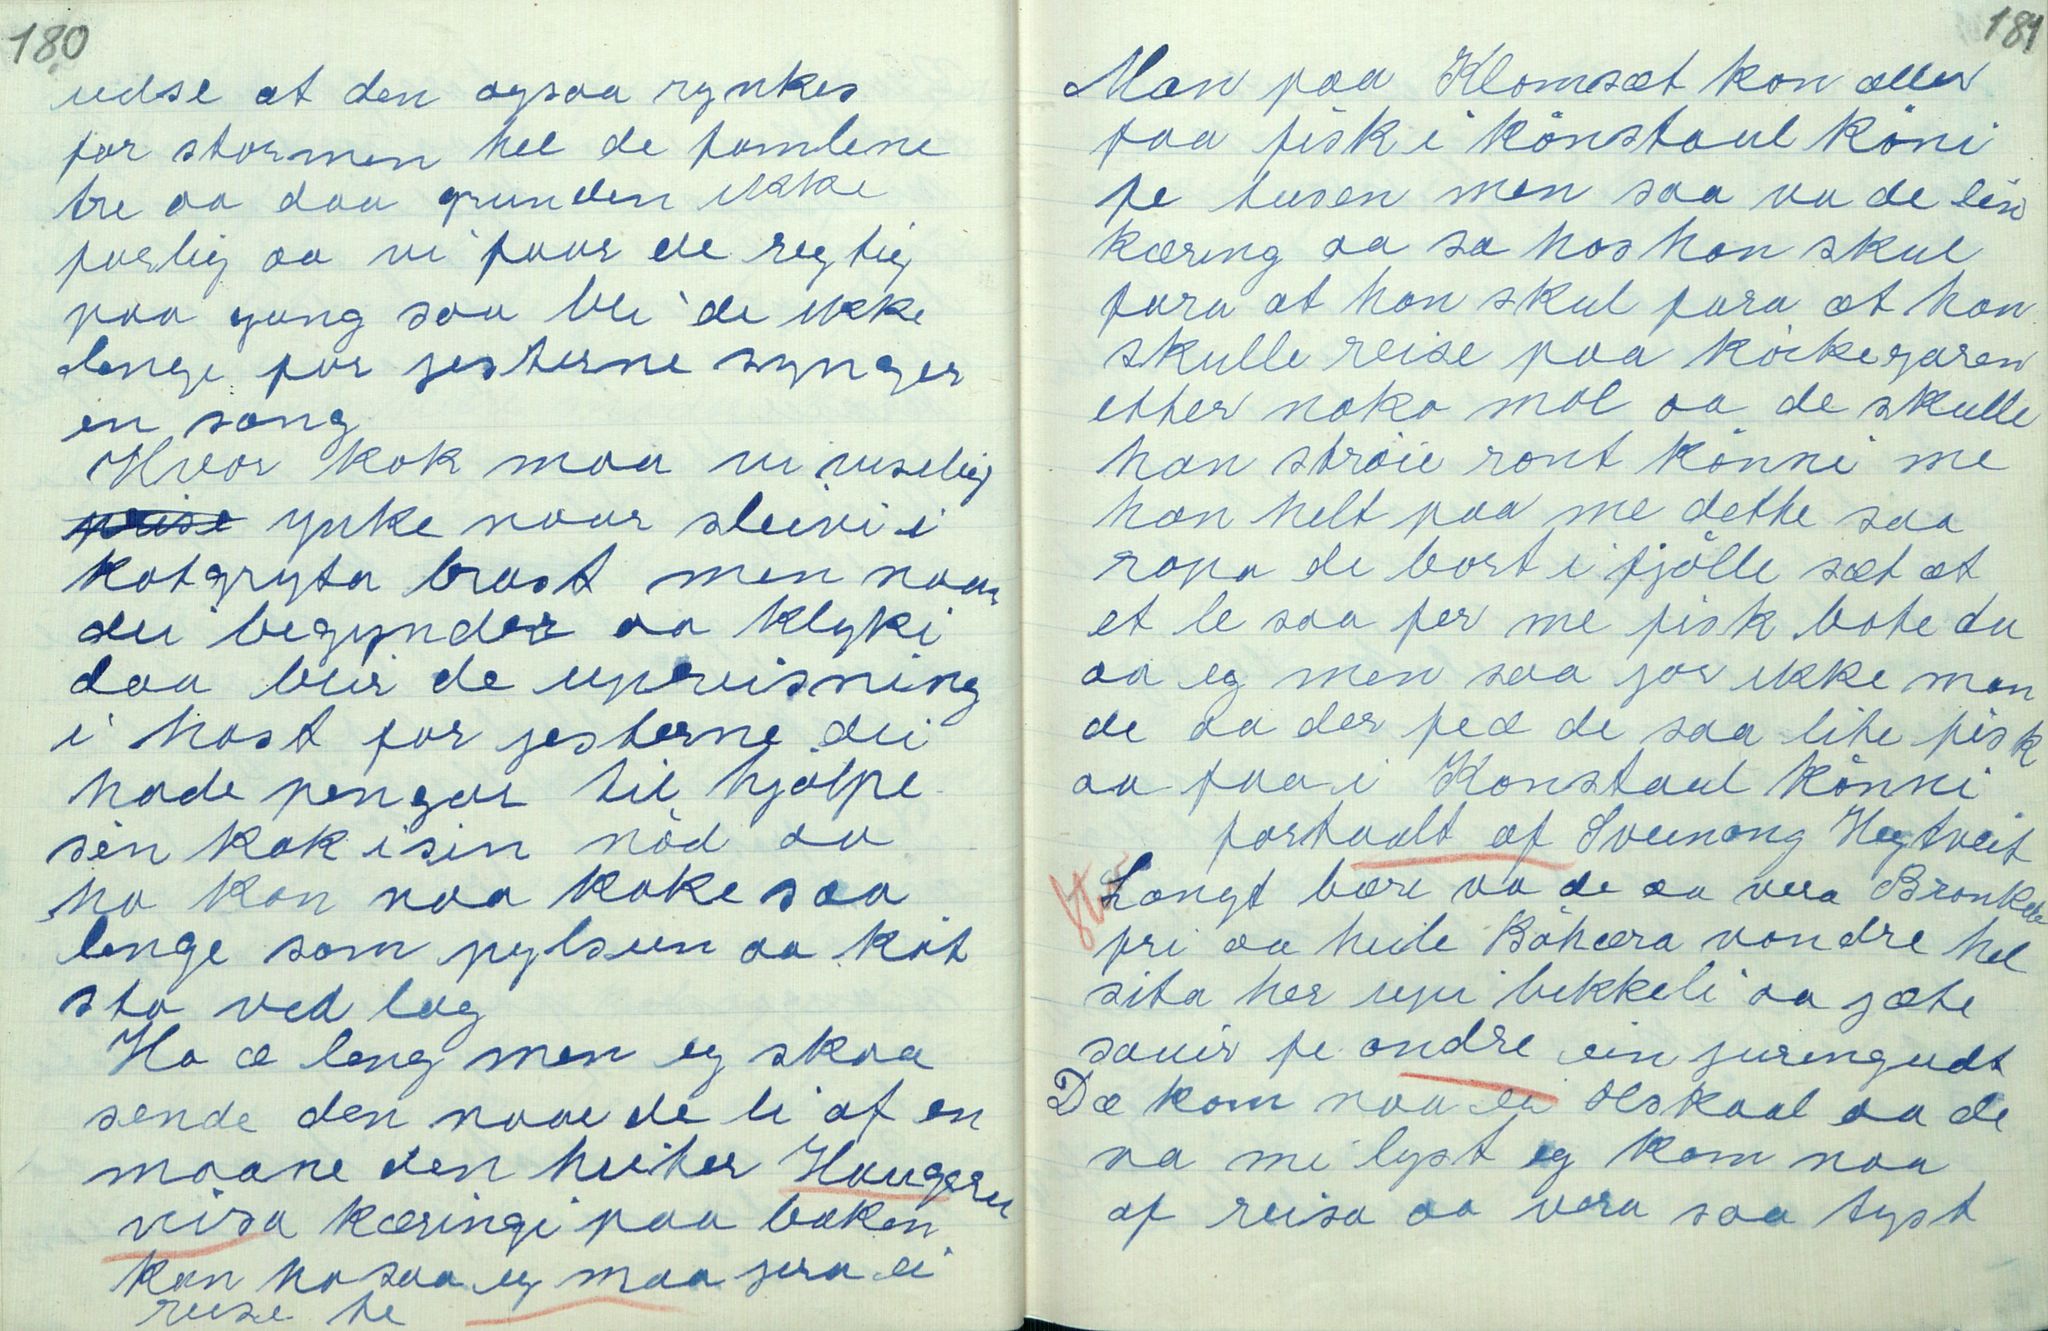 180
udse at den ogsaa rynkes
for stormen hel de famlene
tre aa daa grunden ikke
farlig aa vi faar de regtig
paa gang saa bli de ikke
lenge for jesterne synger
en sang
Hvor kok maa vi viselig
ynke naar sleivi i
kotgryta brast men naar
dei begynder aa klyki
daa blir de upreisning
i hast for jesterne dei
hade pengar til hjølpe
sin kok i sin nöd aa
ho kan naa koke saa
lenge som pylseen aa köt
sta ved lag
Ho æ leng men eg skaa
sende den naae de li af en
maane den heiter Haugeru
visa kæringi paa baken
kan ho saa eg maa jera ei
reise te
181
Man paa Klomsæt kon aller
faa fisk i könstaul köni
fe tusen men saa va de ein
kæring aa sa hos han skul
fara at han skul fara at han
skulle reise paa köckegaren
etter noko mol aa de skulle
han ströie ront könni me
han helt paa me dette saa
ropa de bort i fjölle sæt at
et le saa fer me fisk bote du
aa eg men saa jor ikke man
de aa der fed de saa lite fisk
aa faa i Konstaul könni
fortaalt af Sveinang Hegtveit
Langt bære va de aa vera Bronkela
fri aa heile Böhæra vondre hel
sita her upi bikkeli aa jæte
sauir fe andre ein jurengudt
Dæ kom naa ei Olskaal aa de
va mi lyst eg kom naa
af reisa aa vera saa tyst